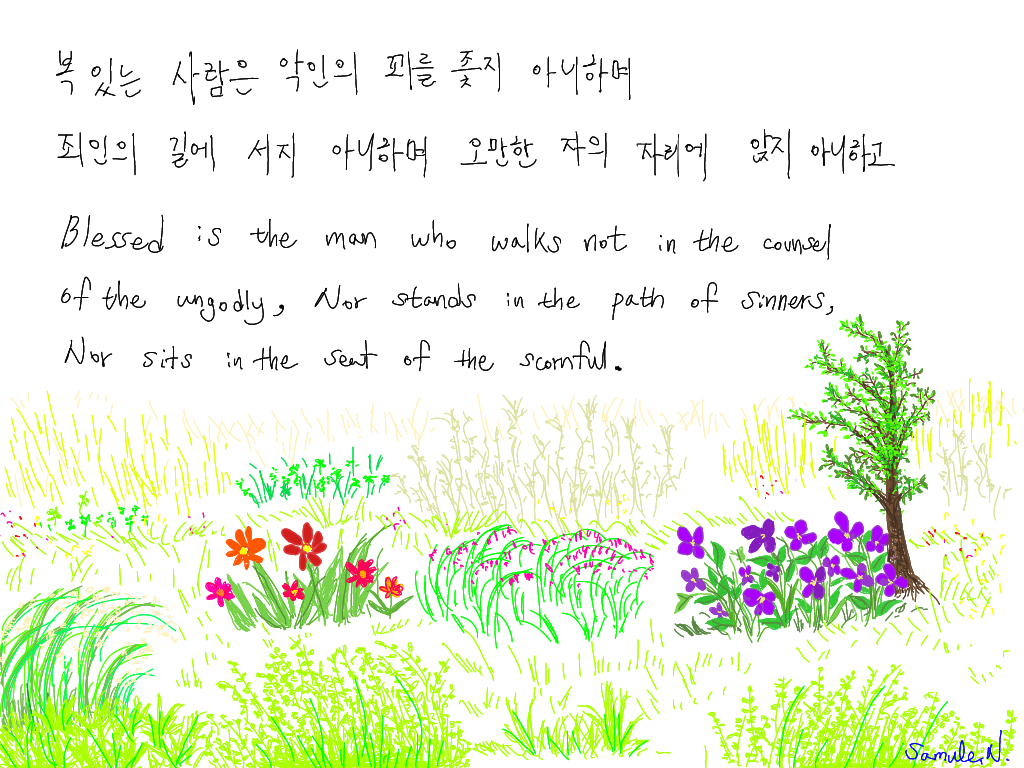 복 있는 사람은 악인의 꾀를 좇지 아니하며
죄인의 길에 서지 아니하며 오만한 자의 자리에 앉지 아니하고
Blessed is the man who walks not in the counsel
of the ungodly, Nor stands in the path of sinners,
Nor sits in the seat of the scornful.
Samule.N.